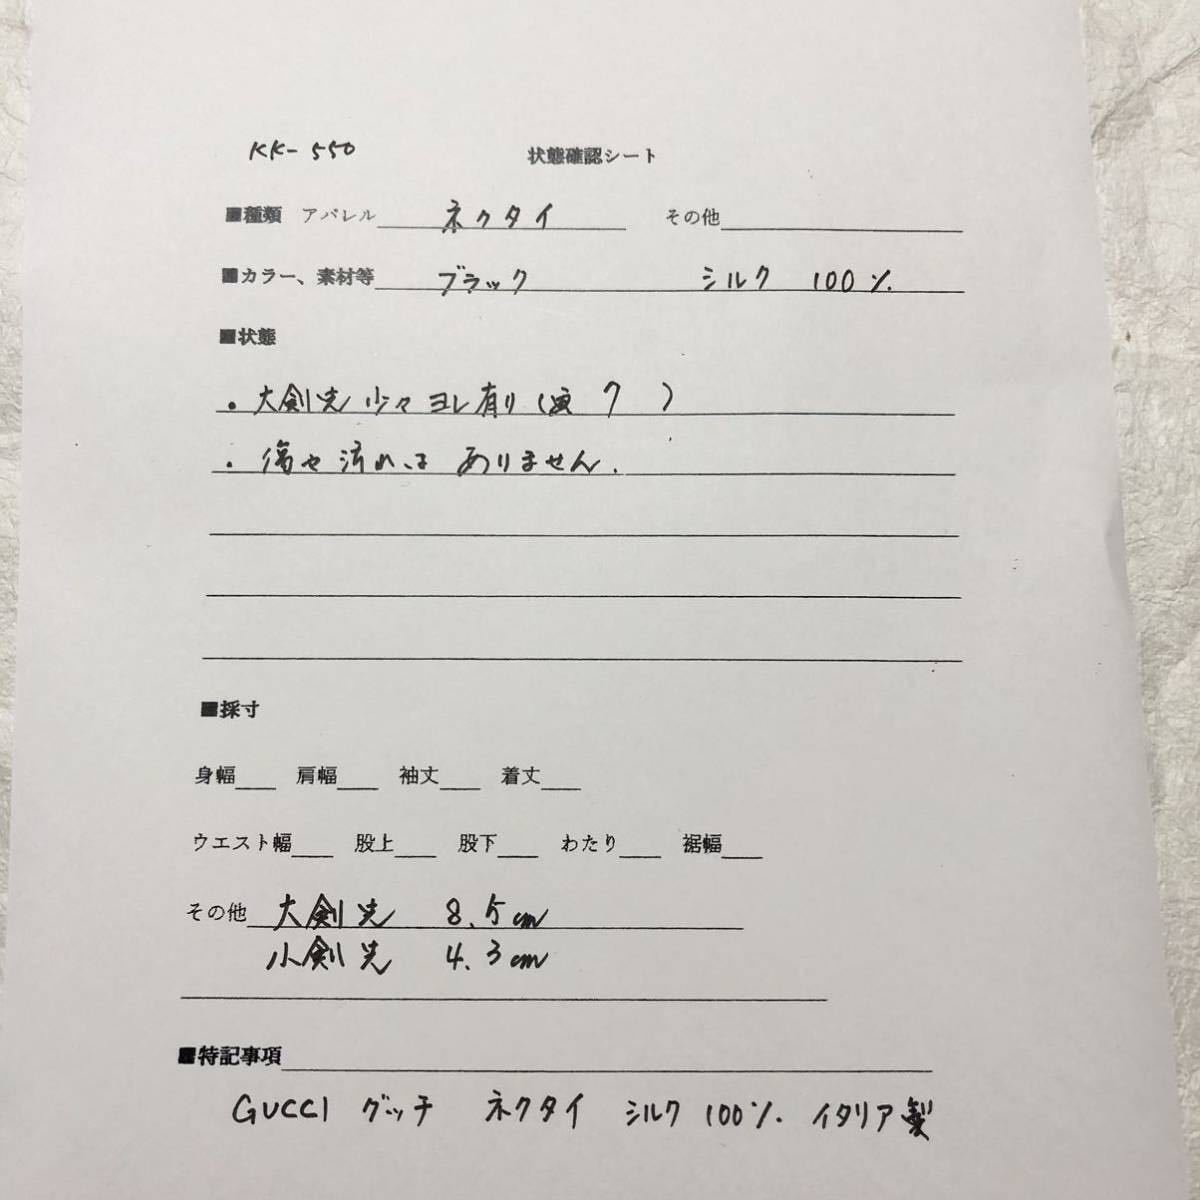 KK-550 状態確認シート
■種類 アパレル ネクタイ その他
■カラー、素材等 ブラック シルク 100%
■状態
・大剣先 少々ヨレ有り( 7 )
・傷や汚れは ありません.
■採寸
身幅 肩幅 袖丈 着丈
ウエスト幅 股上 股下 わたり 裾幅
その他 大剣先 8.5cm
小剣先 4.3cm
■特記事項
GUCCI グッチ ネクタイ シルク 100% イタリア製